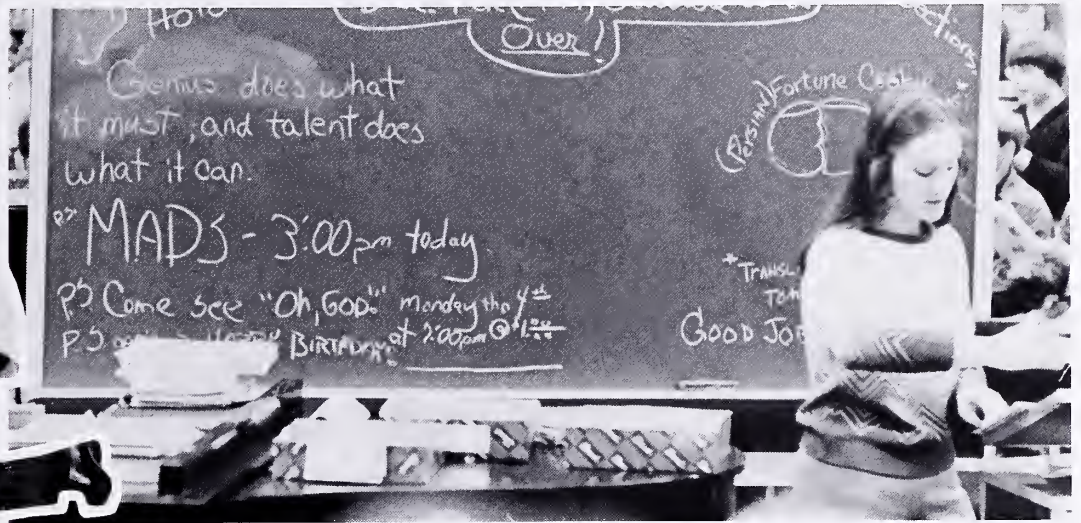 Hold
Over!
Genius does what
it must, and talent does
what it can.
PS MADS - 3:00pm today
PS Come see "Oh, GOD!" Monday the 4th
at 7:00pm @
PS HAPPY BIRTHDAY
(PERSIAN) Fortune
*TRANSL
GOOD JOB